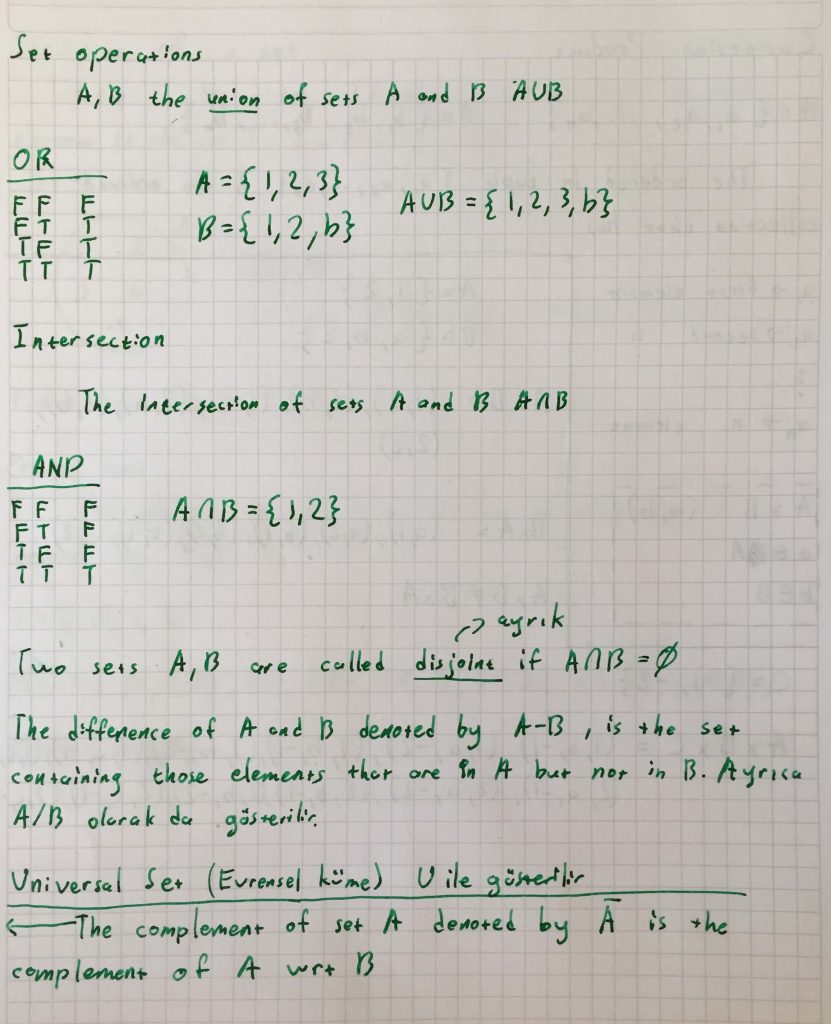 Set operations
A, B the union of sets A and B A∪B
OR
F F F
F T T
T F T
T T T
A = {1, 2, 3}
B = {1, 2, b}
A∪B = {1, 2, 3, b}
Intersection
The intersection of sets A and B A∩B
AND
F F F
F T F
T F F
T T T
A∩B = {1, 2}
→ ayrık
Two sets A, B are called disjoint if A∩B = ∅
The difference of A and B denoted by A-B, is the set
containing those elements that are in A but not in B. Ayrıca
A/B olarak da gösterilir.
Universal Set (Evrensel küme) U ile gösterilir
← The complement of set A denoted by Ā is the
complement of A wrt B